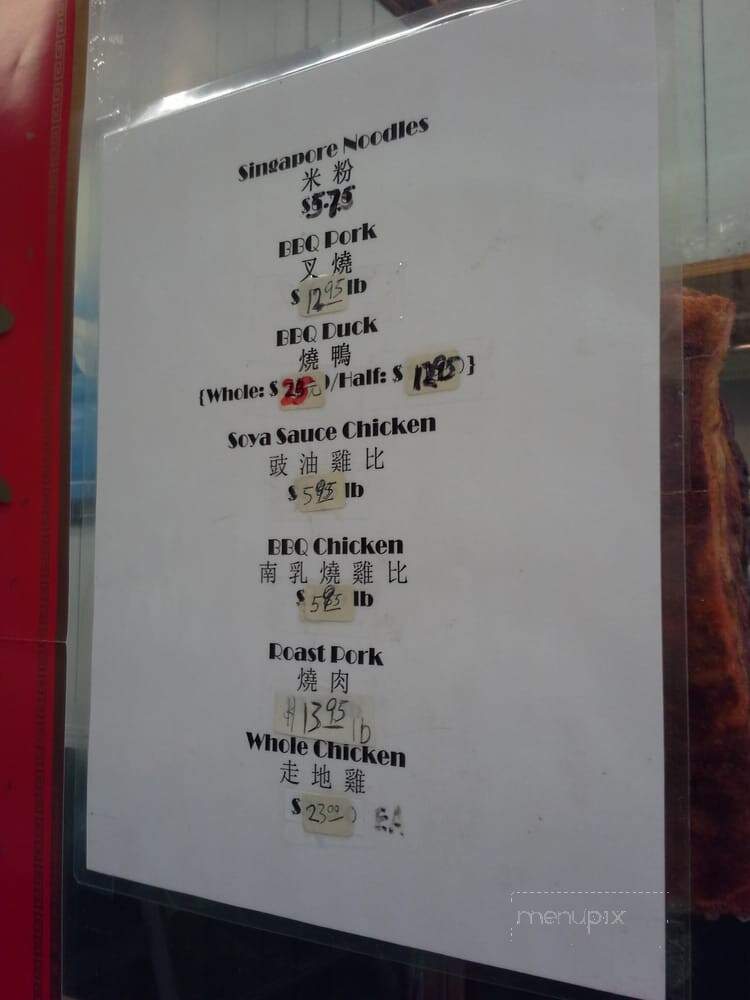 Singapore Noodles
米粉
$5.75
BBQ Pork
叉燒
$ 12.95 lb
BBQ Duck
燒鴨
{Whole: $ /Half: $ }
Soya Sauce Chicken
豉油雞比
$ 5.95 lb
BBQ Chicken
南乳燒雞比
$ 5.95 lb
Roast Pork
燒肉
$13.95 lb
Whole Chicken
走地雞
$ 23.00 EA
menupix